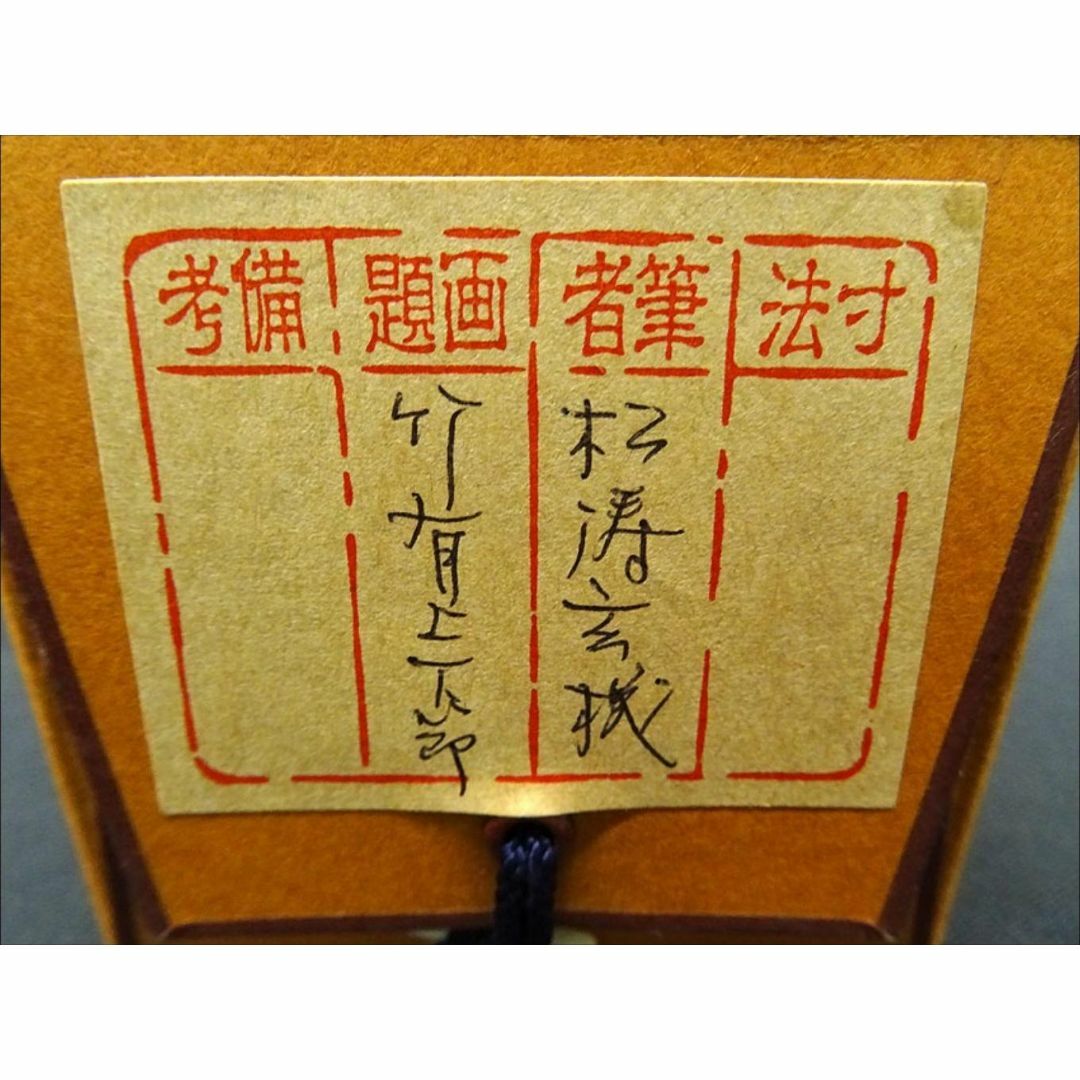 寸法
筆者
松涛玄機
画題
竹有上下節
備考